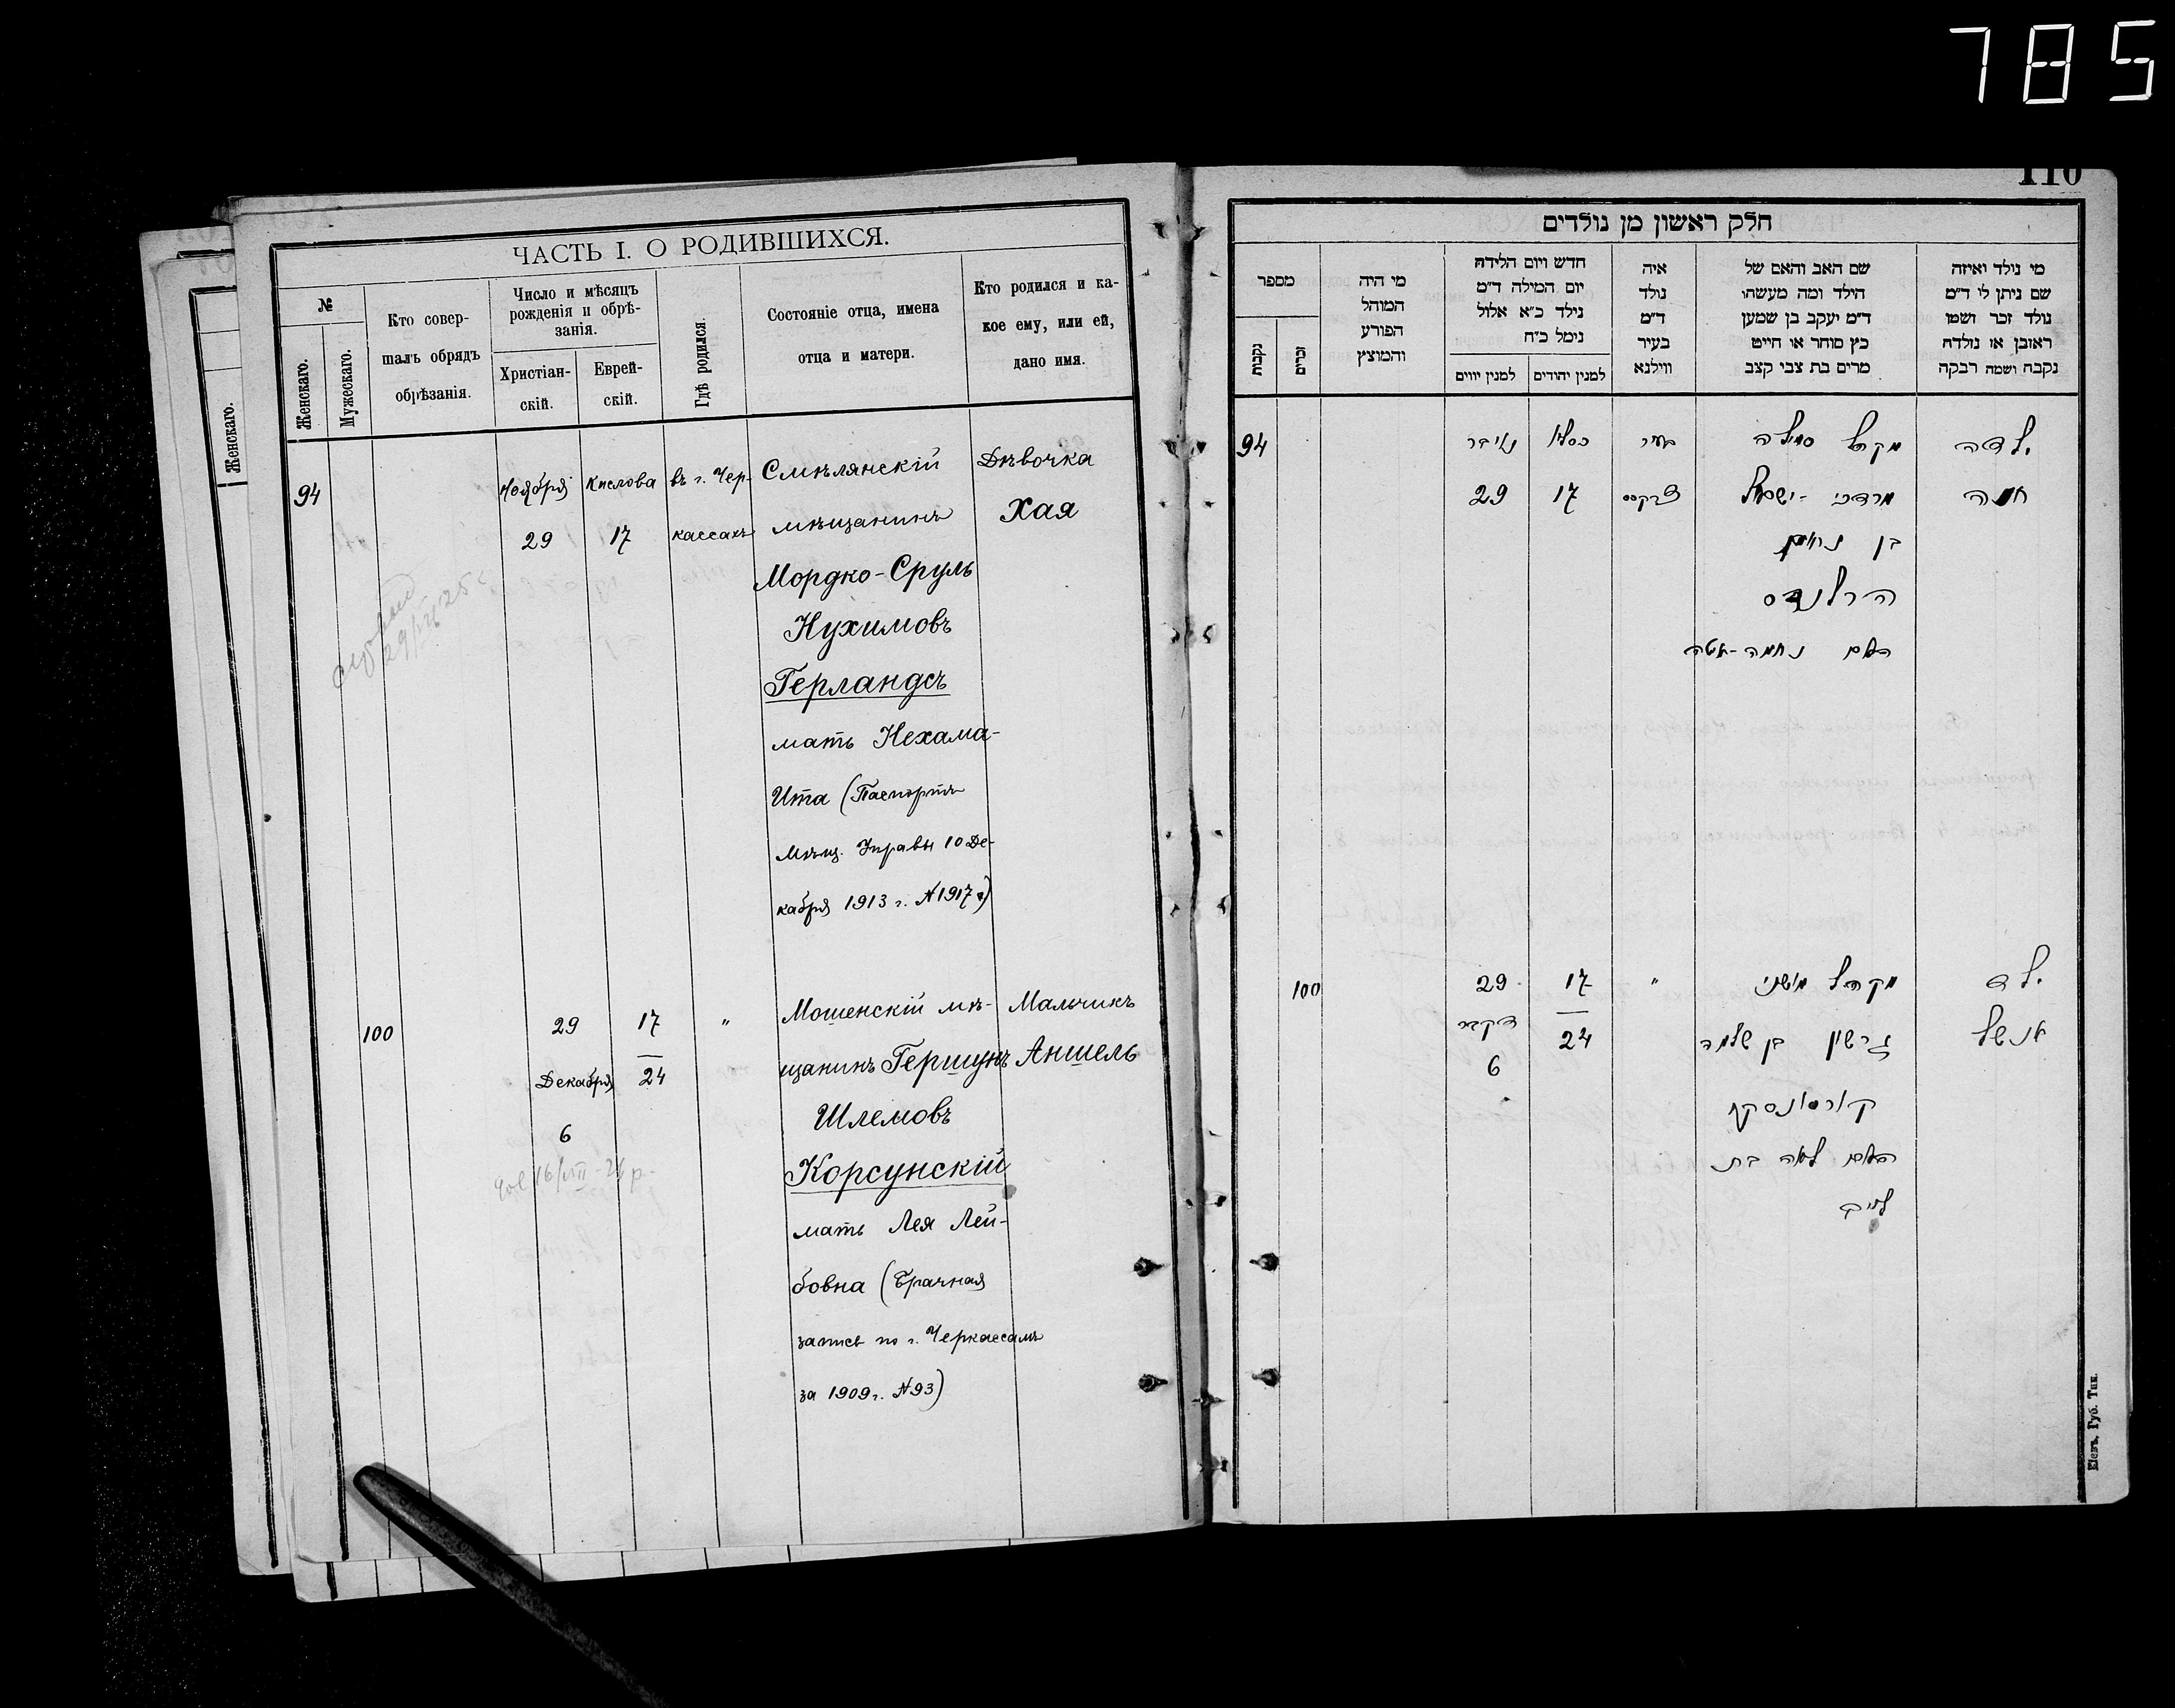 785
110
ЧАСТЬ I. О РОДИВШИХСЯ.
№
Женскаго.
Мужескаго.
Кто совер-
шалъ обрядъ
обрѣзанія.
Число и мѣсяцъ
рожденія и обрѣ-
занія.
Христіан-
скій.
Еврей-
скій.
Гдѣ родился.
Состояніе отца, имена
отца и матери.
Кто родился и ка-
кое ему, или ей,
дано имя.
Женскаго.
94
Ноября
29
Кислова
17
въ г. Чер-
кассахъ
Смѣлянскій
мѣщанинъ
Мордко-Сруль
Нухимовъ
Герландсъ
мать Нехама-
Ита (Паспортъ
Мѣщ. Управы 10 Де-
кабря 1913 г. №1917)
Дѣвочка
Хая
100
29
Декабря
6
17
24
"
Мошенскій мѣ-
щанинъ Гершунъ
Шлемовъ
Корсунскій
мать Лея Лей-
бовна (Брачная
запись по г. Черкассамъ
за 1909 г. №93)
Мальчикъ
Аншель
חלק ראשון מן נולדים
מספר
נקבות
זכרים
מי היה
המוהל
הפורע
והמוצץ
חדש ויום הלידה
יום המילה ד"מ
נילד כ"א אלול
נימל כ"ח
למנין יווים
למנין יהודים
איה
נולד
ד"מ
בעיר
ווילנא
שם האב והאם של
הילד ומה מעשהו
ד"מ יעקב בן שמען
כץ סוחר או חייט
מרים בת צבי קצב
מי נולד ואיזה
שם ניתן לו ד"מ
נולד זכר ושמו
ראובן או נולדה
נקבה ושמה רבקה
94
נאיבר
29
כסליו
17
בעיר
מקהל סמילה
מרדכי - ישראל
בן נחום
הרלנדס
האם נחמה-אטה
ילדה
חיה
100
29
דקבר
6
17
24
"
מקהל מושני
גרשון בן שלמה
קורסונסקי
האם לאה בת
לייב
ילד
אנשל
Кіевъ. Губ. Тип.